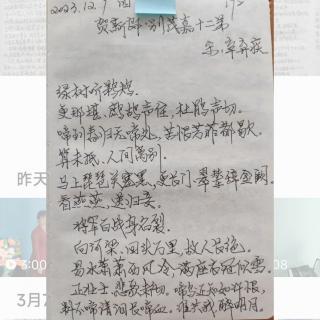 2023.12.9
贺新郎·别茂嘉十二弟
宋·辛弃疾
绿树听鹈鴂.
更那堪、鹧鸪声住，杜鹃声切.
啼到春归无啼处，苦恨芳菲都歇.
算未抵、人间离别.
马上琵琶关塞黑，更长门、翠辇辞金阙.
看燕燕，送归妾.
将军百战身名裂.
向河梁、回头万里，故人长绝.
易水萧萧西风冷，满座衣冠似雪.
正壮士、悲歌未彻.啼鸟还知如许恨，
料不啼清泪长啼血.谁共我，醉明月.
昨天
3:00
:08
3月